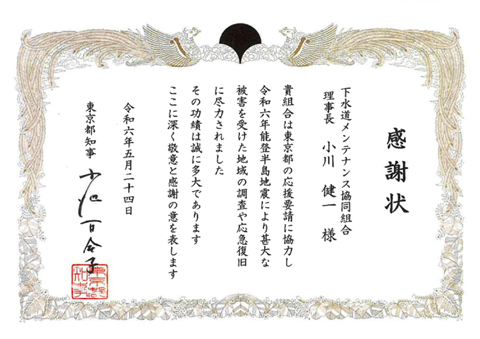 感謝状
下水道メンテナンス協同組合
理事長　小川　健一　様
貴組合は東京都の応援要請に協力し
令和六年能登半島地震により甚大な
被害を受けた地域の調査や応急復旧
に尽力されました
その功績は誠に多大であります
ここに深く敬意と感謝の意を表します
令和六年五月二十四日
東京都知事　小池百合子